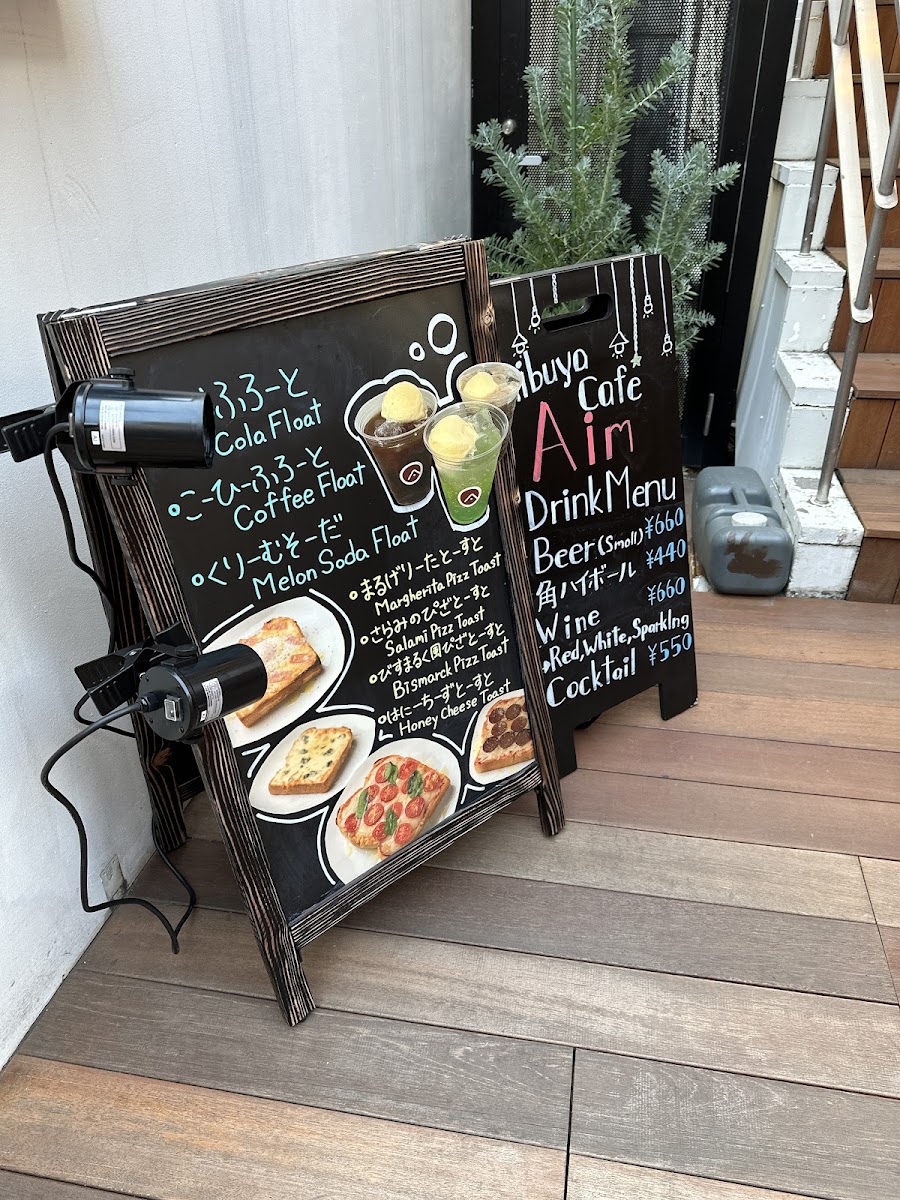 ふろーと
Cola Float
こーひーふろーと
Coffee Float
くりーむそーだ
Melon Soda Float
まるげりーたとーすと
Margherita Pizz Toast
さらみのぴざとーすと
Salami Pizz Toast
びすまるく風ぴざとーすと
Bismarck Pizz Toast
はにーちーずとーすと
Honey Cheese Toast
ibuya
Cafe
Aim
Drink Menu
Beer (Small) ¥660
角ハイボール ¥440
Wine ¥660
,Red,White,Sparklng
Cocktail ¥550